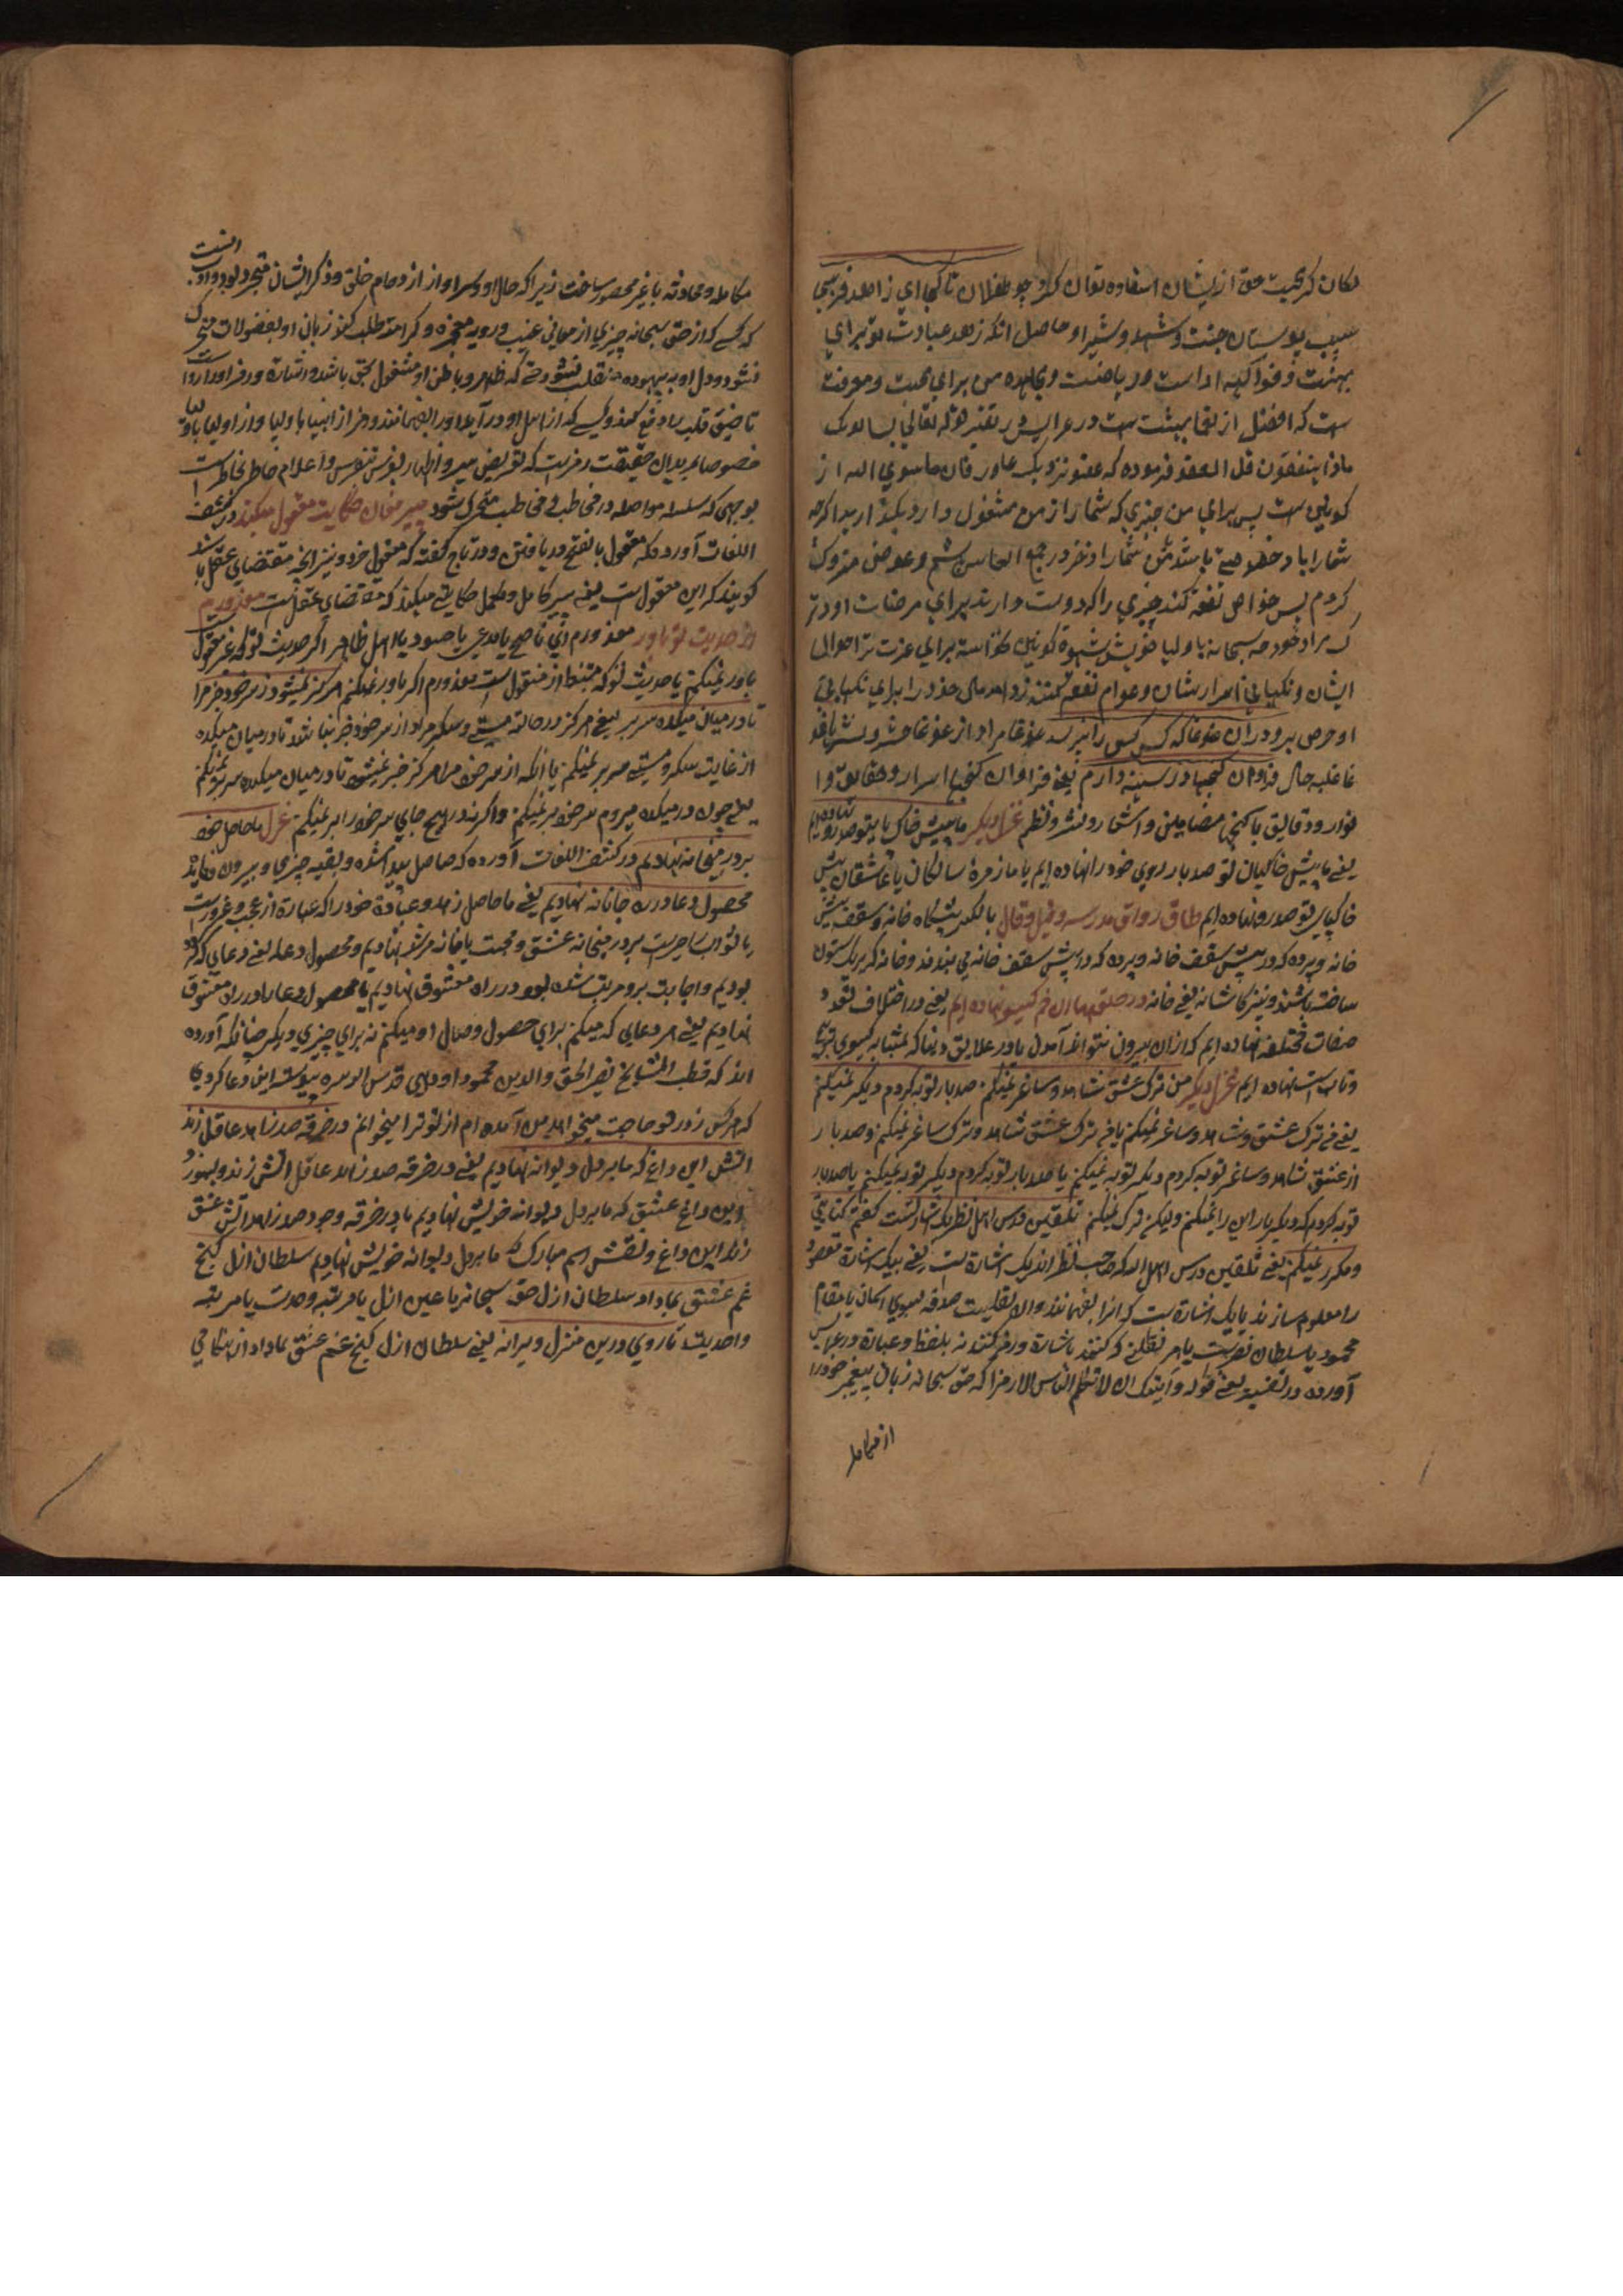 مکان کرد محبت حق از ایشان استفاده توان کرد چو طفلان تا کجا ای زاهد فریبی
سیب بوستان جنت و شهد و شیر او حاصل آنکه زهد عبادت تو برای
بهشت و فواکهه است و ریاضت و مجاهده من برای محبت و معرفت
ست که افضل از لقا بهشت ست در عرایس در تفسیر قوله تعالی یسالونک
ماذا ینفقون قل العفو فرموده که عفو نزدیک عاور فان ماسوی الله از
کونین ست پس برای من چیزی که شما را از من مشغول دارد بگذارید اگرچه
شما را باد خصوصیة باشد من شما را در جمع
کردم پس خواص نفقه کنند چیزی را که دوست دارند برای مرضات او
مراد خود سبحانه باولیا خویش شهوة کونین خواسته برای عزت احوال
ایشان و نکهبانی اسرار ایشان و عوام نفقه کنند زواید مالی خود را برای نکهبانی
او حرص برودران غوغا که کس کس را نپرسد غوغا مراد از غوغا حشر و نشر یا غوغا
غلبه حال فراوان گنجها در سینه دارم یعنی فراوان گنجها اسرار و حقایق و
انوار و دقایق یا گنجها مضامین و اشعار و نثر و نظم غزل دیگر ما پیش خاک پای تو صد رو نهاده ایم
یعنی ما پیش خاک پای تو صد بار روی خود را نهاده ایم یا ما زمرهٔ سالکان یا عاشقان پیش
خاک پای تو صد رو نهاده ایم طاق رواق مدرسه و قیل و قال بالکسر پیشگاه خانه و سقف پیش
خانه و پرده که در پیش سقف خانه و پرده که در پیش سقف خانه می بندند و خانه که بر یک ستون
ساخته باشند و نیز کاشانه یعنی خانه در حلقهای آن خم گیسو نهاده ایم یعنی در اختلاف تعدد
صفات مختلفه نهاده ایم که ازان بیرون نتوانم آمدن یا در علایق دنیا که بمثابه گیسوی
و تاب است نهاده ایم غزل دیگر من ترک عشق شاهد و ساغر نمیکنم صد بار توبه کردم و دیگر نمیکنم
یعنی فی ترک عشق و شاهد و ساغر نمیکنم یا فی ترک عشق شاهد و ترک ساغر نمیکنم و صد بار
از عشق شاهد و ساغر توبه کردم و دیگر توبه نمیکنم یا صد بار توبه کردم و دیگر توبه نمیکنم یا صد بار
توبه کردم که دیگر بار این را نمیکنم ولیکن ترک نمیکنم تلقین درس اهل نظر یک اشارتست گفتم کنایتی
و مکرر نمیکنم یعنی تلقین درس اهل الله که صاحب نظر اند یک اشارة ست یعنی بیک اشارة مقصود
را معلوم سازند یا یک اشارة ست که آنرا بفهمانند
محمود یا سلطان نصیرست یا هر نقلی که کنند باشارة و رمز کنند نه بلفظ و عبارة در عرایس
آورده در تفسیر یعنی قوله و آیتک ان لا تکلم الناس الا رمزا که حق سبحانه زبان پیغمبر خود را
از مکالمه
مکالمه و محادثه با غیر محصور ساخت زیرا که حال او و سر او از ازدحام خلق و ذکر ایشان متجرد بود و آن آنست
که کسی که از حق سبحانه چیزی از معانی غیب و رویه معجزه و کرامة طلب کند زبان او بفضولات متحرک
نشود و دل او به بیهوده منقلب نشود که ظاهر و باطن او مشغول بحق باشد و اشارة و رمز او را رواست
تا ضیق قلب را دفع کند و کسی که از اهل او در آید او را بفهمانند و رمز از انبیا باولیا و از اولیا باولیا
خصوصا مریدان حقیقت رمزست که تعریض سر و اظهار نفس بنفس و اعلام خاطر بخاطرست
بوجهی که سلسله مواصله در مخاطب و مخاطب متحرک شود پیر مغان حکایت معقول میکند در کشف
اللغات آورده که معقول بالفتح دریافتن و در تاج گفته که معقول خرد و نیز آنچه مقتضای عقل باشد
گویند که این معقول است یعنی پیر کامل و مکمل حکایتی میکند که مقتضای عقل ست معذورم
از حدیث تو باور معذورم ای ناصح یا مدعی یا حسود یا اهل ظاهر اگر حدیث تو که غیر معقول
باور نمیکنم یا حدیث تو که مستنبط از منقول ست معذورم اگر باور نمیکنم هرگز نمیشود ز سر خود خبر مرا
تا در میان میکده سر بر یعنی هرگز در حالة مستی و سکر مرا از سر خود خبر نباشد تا در میان میکده
از غایت سکر و مستی سر بر نمیکنم یا آنکه از سر خود مرا هرگز خبر نمیشود تا در میان میکده سر بر نمیکنم
یعنی چون در میکده میروم سر خود بر نمیکنم و اگر نه در هیچ جای سر خود را بر نمیکنم غزل ما حاصل خود
بر در میخانه نهادیم در کشف اللغات آورده که حاصل پیدا شده و بقیه چیزی و بیرون
محصول دعا در ره جانانه نهادیم یعنی ما حاصل زهد و عبادة خود را که عبارة از عجب و غرورست
یا ثواب و اجرست بر در میخانه عشق و محبت یا خانه مرشد نهادیم و محصول دعا یعنی دعایی که کرده
بودیم و اجابت برو مرتب شده بود در راه معشوق نهادیم یا محصول دعا را در راه معشوق
نهادیم یعنی هر دعایی که میکنم برای حصول وصال او میکنم نه برای چیزی دیگر چنانکه آورده
اند که قطب المشایخ نصیر الحق والدین محمود اودهی قدس الله سره پیوسته این دعا کردی
که هر کس ز در تو حاجت میخواهد من آمده ام از تو ترا میخواهم در خرقه صد زاهد عاقل زند
آتش این داغ که ما بر دل دیوانه نهادیم یعنی در خرقه صد زاهد عاقل آتش زند و بسوزد
این داغ عشق که ما بر دل دیوانه خویش نهادیم یا در خرقه وجود صد زاهد آتش عشق
زند این داغ و نقش اسم مبارک که ما بر دل دیوانه خویش نهادیم سلطان ازل گنج
غم عشق بما داد سلطان ازل حق سبحانه یا عین ازل یا مرتبه وحدت یا مرتبه
واحدیت تا روی درین منزل ویرانه یعنی سلطان ازل گنج غم عشق بما داد از هنگامی